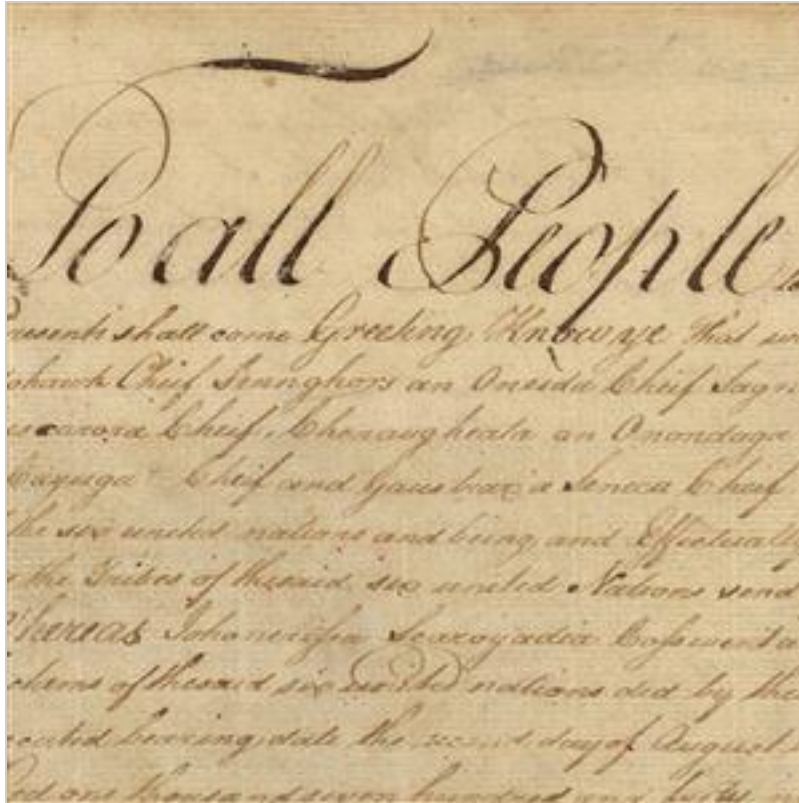 To all People
resents shall come Greeting, Know ye That we
ohawk Cheif Senughors an Oneida Cheif Sagu
uscarora Cheif, Chenaugheata an Onondaga
Cayuga Cheif and Gaustrax a Seneca Cheif
the six united nations and being and Effectually
the Tribes of thesaid six united Nations send
Whereas Johonerissa Scaroyadia Cosswenta
chems of thesaid six united nations did by the
ecuted bearing date the second day of August
Lord one thousand seven hundred and forty